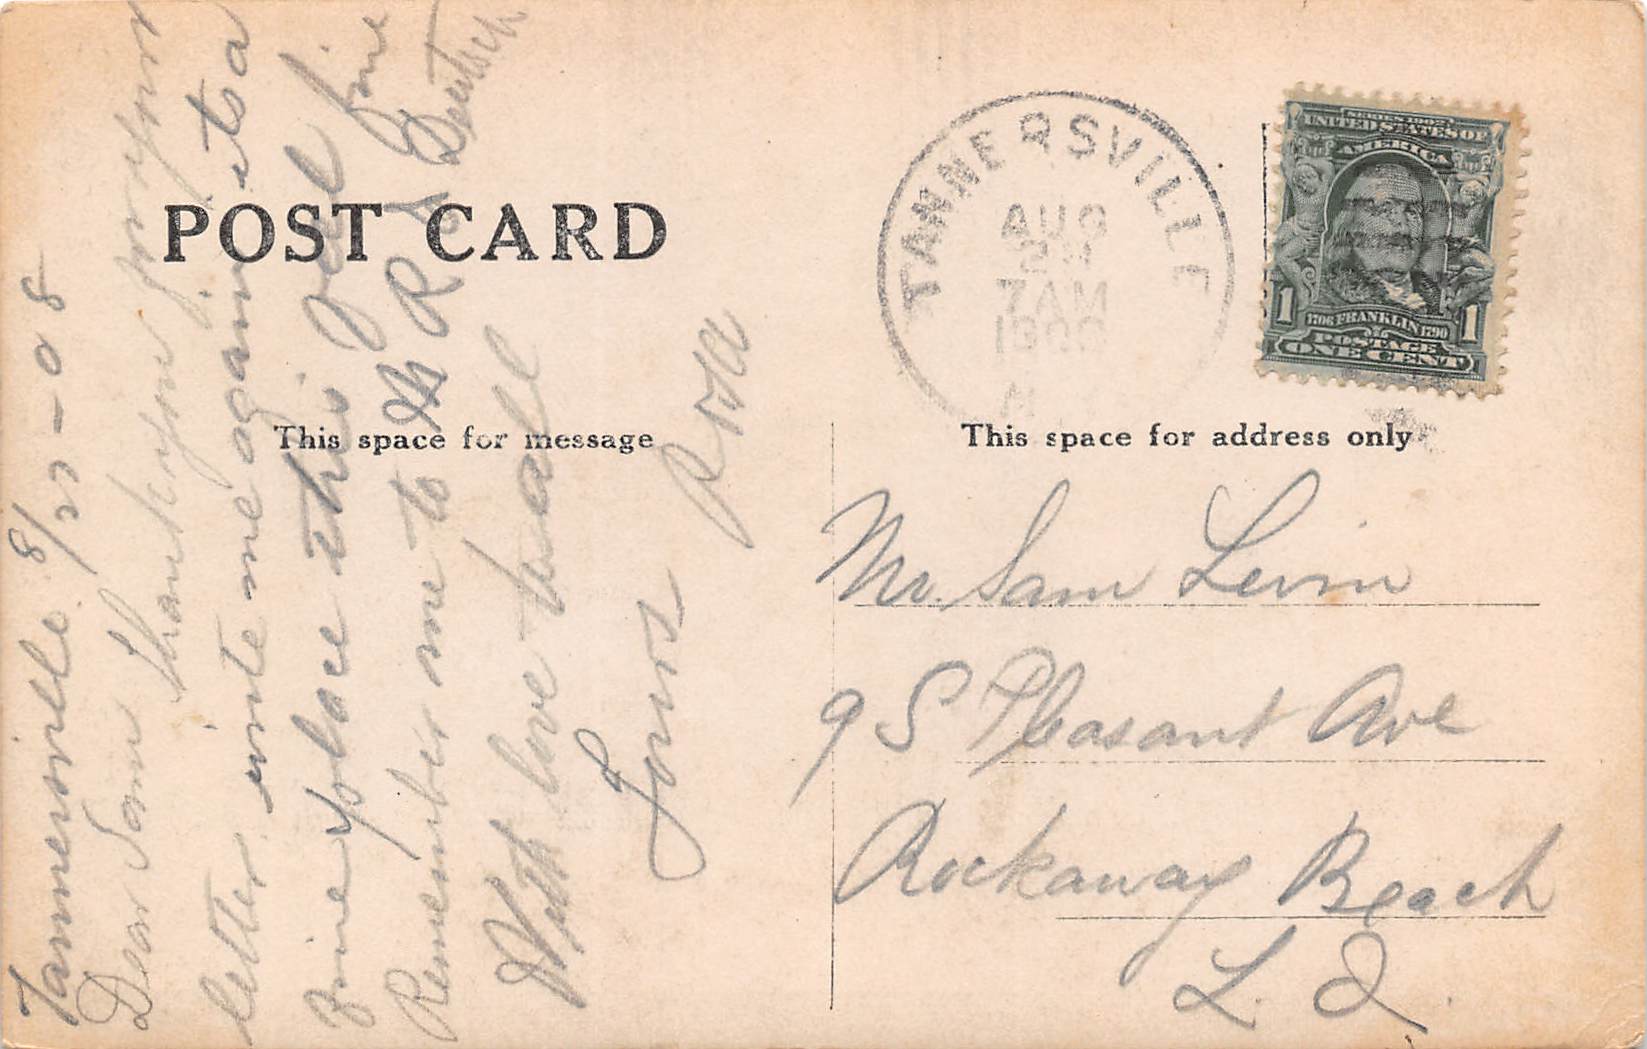 POST CARD
This space for message
Tannersville 8/27-08
Dear Sam Thank you for your
letter. write me again. its a
fine place this feel fine
Remember me to Mr R & Deutsch
With love to all
Yours
Rosa
TANNERSVILLE
AUG
7 AM
SERIES 1902
UNITED STATES OF
AMERICA
1706 FRANKLIN 1790
1 1
POSTAGE
ONE CENT
This space for address only
Mr. Sam Levin
9 S Pleasant Ave
Rockaway Beach
L. I.